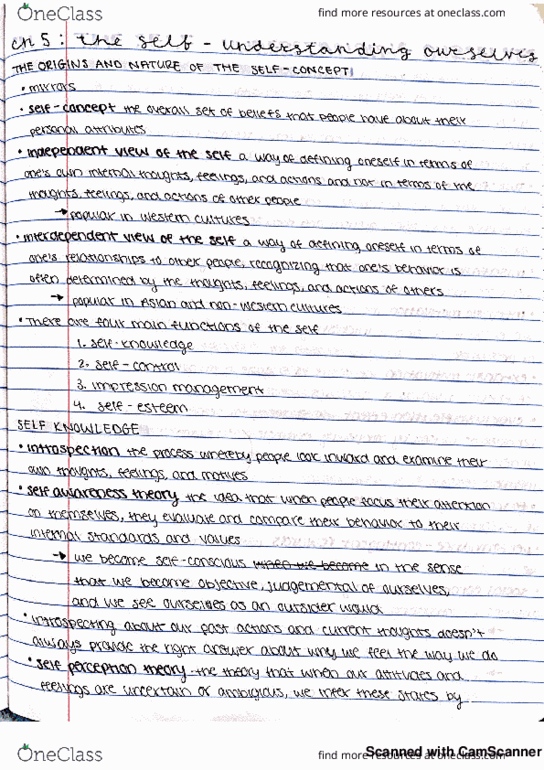 OneClass
find more resources at oneclass.com
ch 5: the self - understanding ourselves
THE ORIGINS AND NATURE OF THE SELF-CONCEPT
• mirrors
• self-concept the overall set of beliefs that people have about their
personal attributes
• independent view of the self a way of defining oneself in terms of
one's own internal thoughts, feelings, and actions and not in terms of the
thoughts, feelings, and actions of other people
→ popular in western cultures
• interdependent view of the self a way of defining oneself in terms of
one's relationships to other people, recognizing that one's behavior is
often determined by the thoughts, feelings, and actions of others
→ popular in Asian and non-western cultures
• There are four main functions of the self
1. self-knowledge
2. self-control
3. impression management
4. self-esteem
SELF KNOWLEDGE
• introspection the process whereby people look inward and examine their
own thoughts, feelings, and motives
• self awareness theory the idea that when people focus their attention
on themselves, they evaluate and compare their behavior to their
internal standards and values
→ we become self-conscious when we become in the sense
that we become objective, judgemental of ourselves,
and we see ourselves as an outsider would
• introspecting about our past actions and current thoughts doesn't
always provide the right answer about why we feel the way we do
• self perception theory - the theory that when our attitudes and
feelings are uncertain or ambigious, we infer these states by
OneClass
find more resources at oneclass.com
Scanned with CamScanner